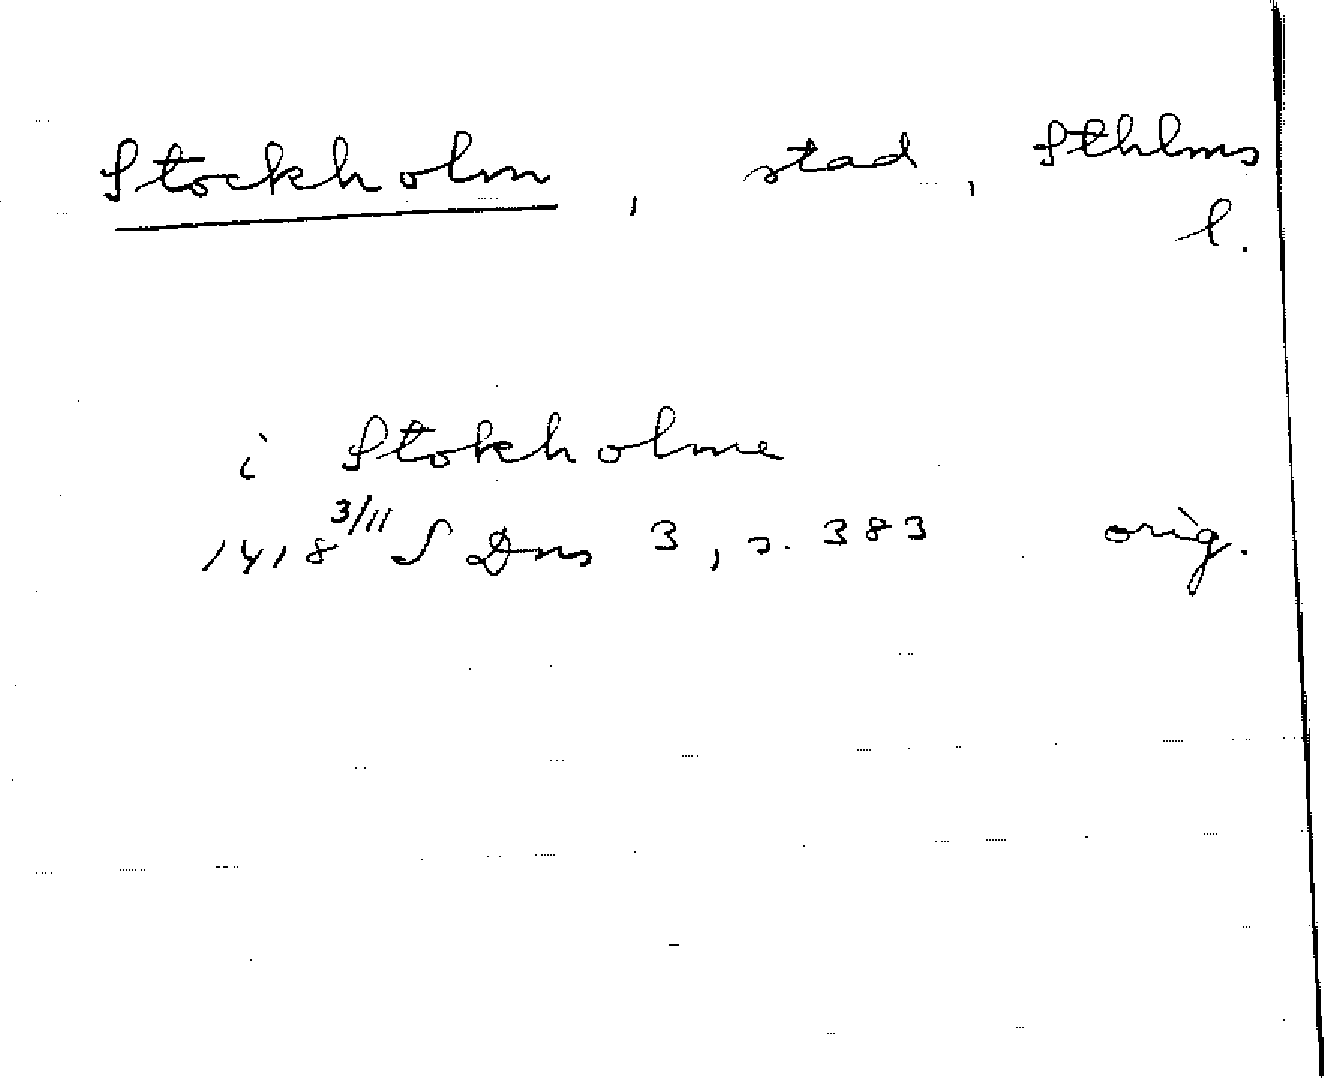 Stockholm, stad, Sthlms
l.
i Stokholme
1418 3/11 S Dns 3, s. 383 orig.